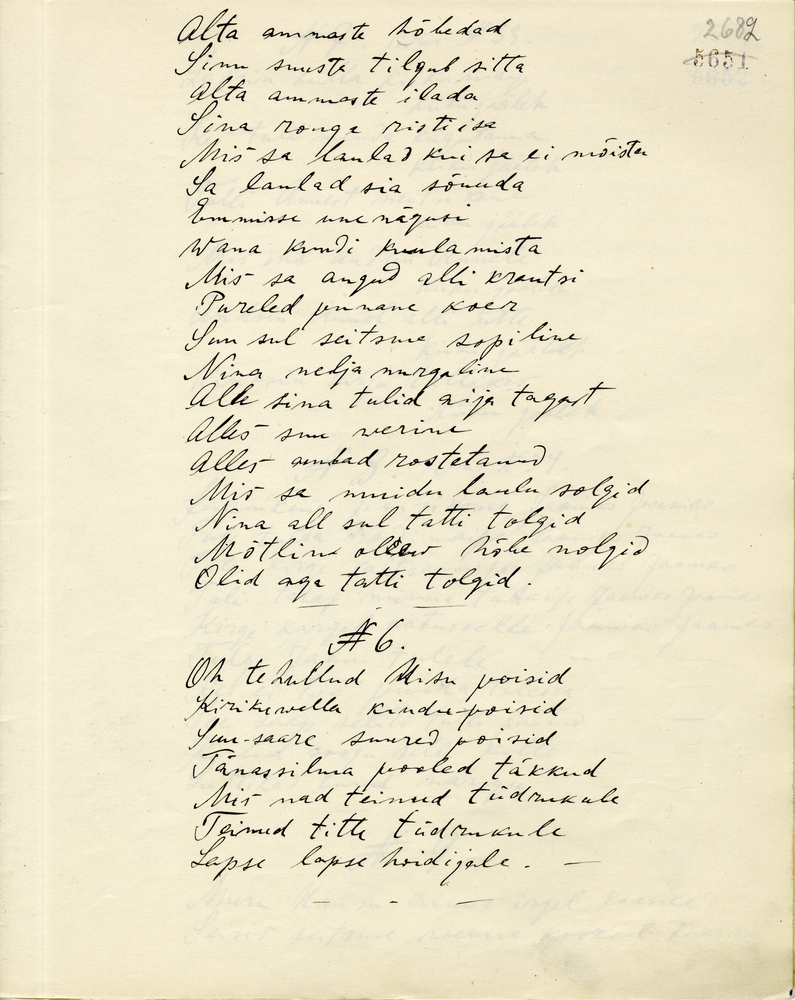 2682
5651
Alta ammaste hõbedad
Sinu suusta tilgub sitta
Alta ammaste ilada
Sina ronga ristiisa
Mis sa laulad kui sa ei mõista
Sa laulad sia sõnuda
Emmisse une nägusi
Wana kundi kuulamista
Mis sa augud alli krantsi
Pureled punane koer
Suu sul seitsme sopiline
Nina nelja nurgaline
Alle sina tulid aija tagast
Alles suu werine
Alles ambad rostetanud
Mis sa muidu laulu solgid
Nina all sul tatti tolgid
Mõtlin ollew hõbe nolgid
Olid aga tatti tolgid.
№ 6.
Oh te hullud Uisu poisid
Kirikuwalla kindu-poisid
Suu-saare suured poisid
Tänassilma pooled täkkud
Mis nad teinud tüdrukule
Teinud titte tüdrukule
Lapse lapse hoidijale. —